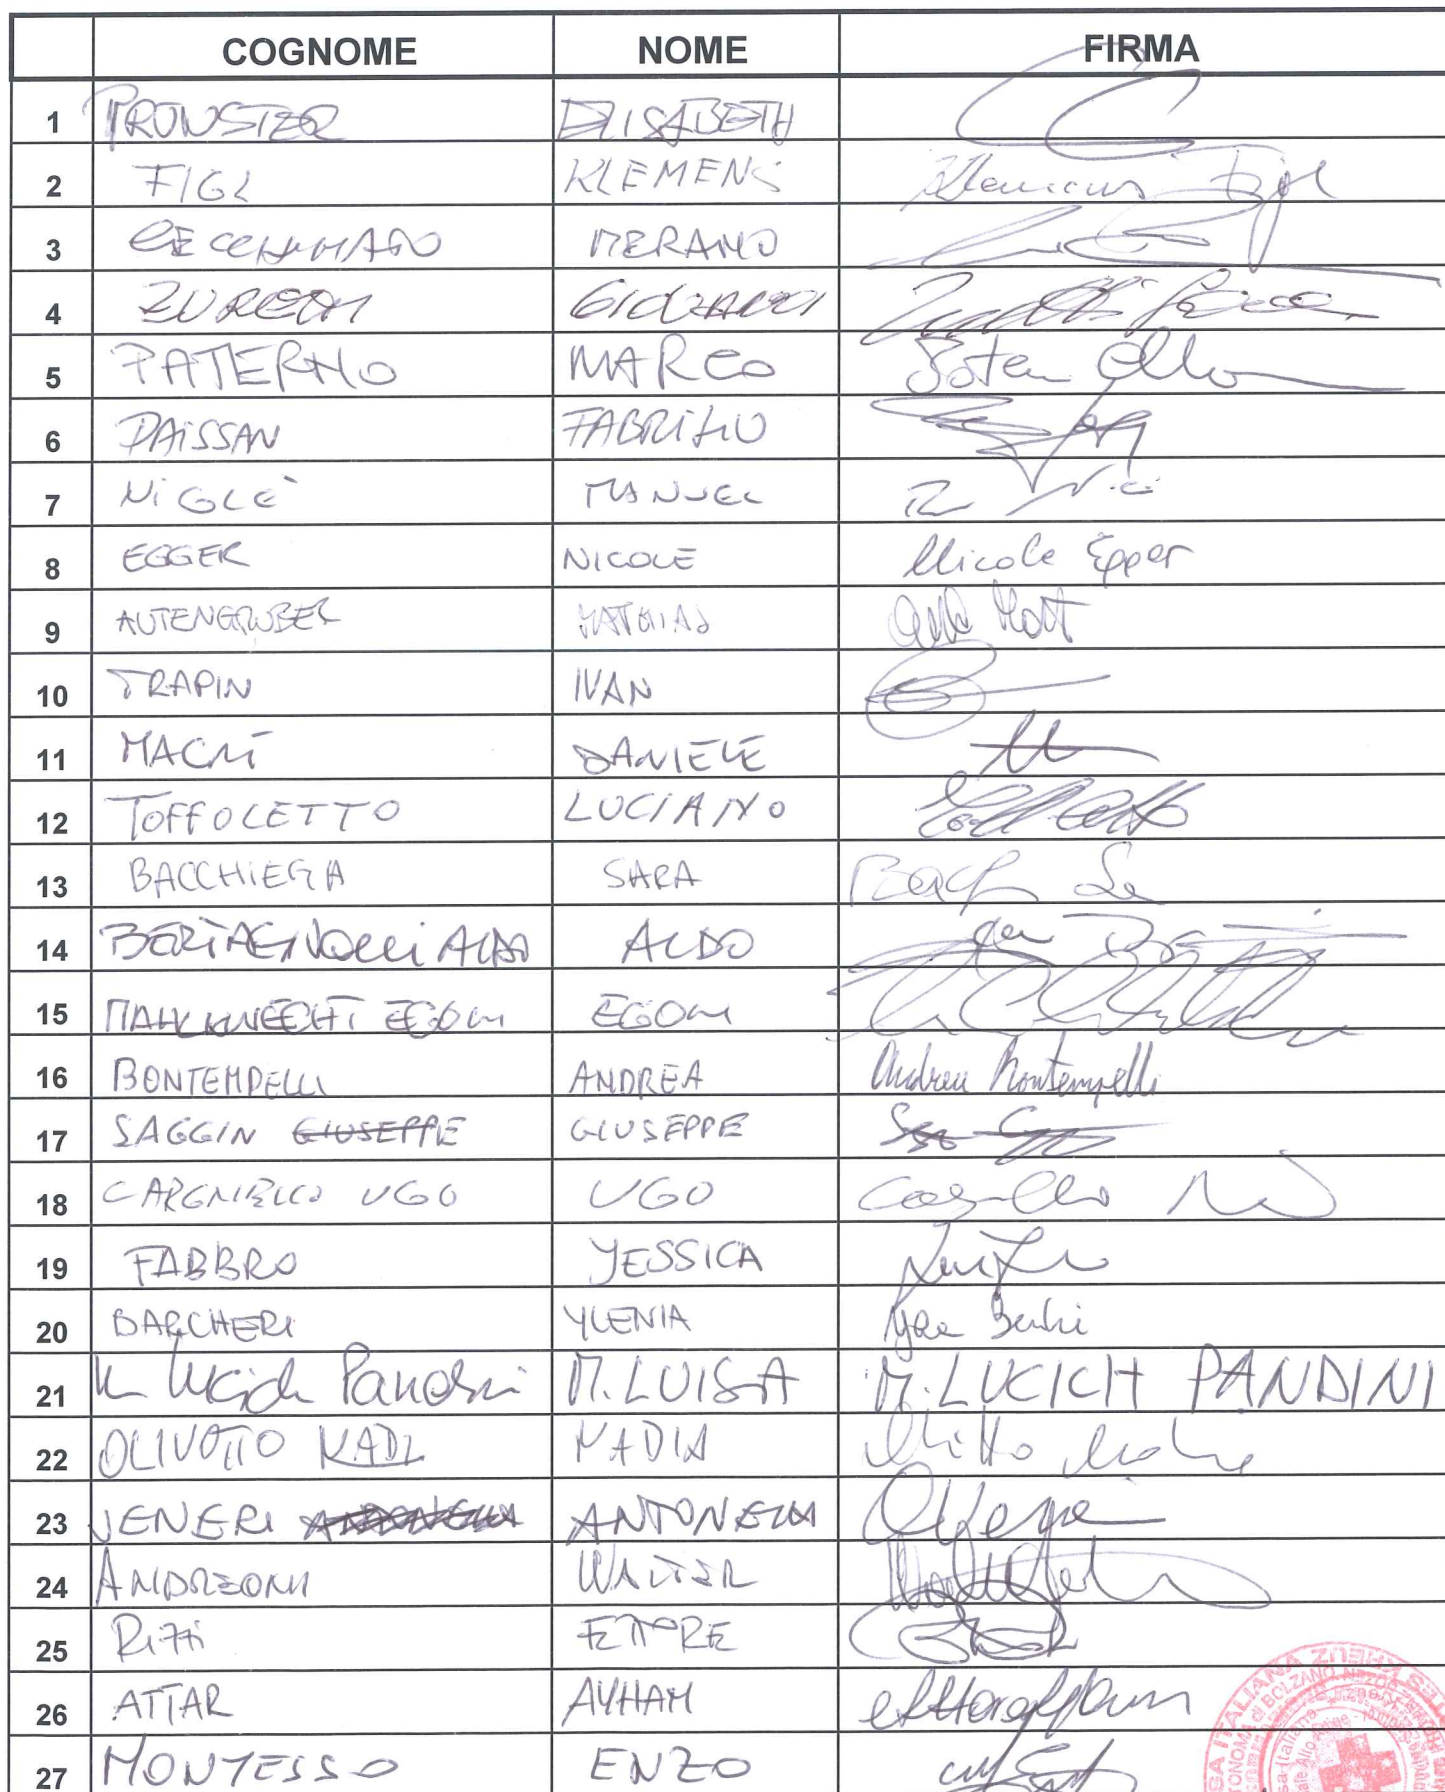 COGNOME NOME FIRMA
1 PRUNSTER ELISABETH
2 FIGL KLEMENS Klemens Figl
3 MERANO
4 ZURLON GIOVANNI
5 PATERNO MARCO
6 PAISSAN FABRIZIO
7 NIGLE' MANUEL
8 EGGER NICOLE Nicole Egger
9 AUTENGRUBER MATHIAS
10 TRAPIN IVAN
11 MACRÌ DANIELE
12 TOFFOLETTO LUCIANO
13 BACCHIEGA SARA
14 BERTAGNOLLI ALDO ALDO
15 MAHLKNECHT EGON EGON
16 BONTEMPELLI ANDREA Andrea Bontempelli
17 SAGGIN GIUSEPPE GIUSEPPE
18 CARGNIELLO UGO UGO
19 FABBRO YESSICA
20 BARCHERI YLENIA
21 M Lucich Pandini M. LUISA M. LUCICH PANDINI
22 OLIVOTTO NADI NADIA
23 VENERI ANTONELLA
24 ANDREONI WALTER
25 Rizzi ETTORE
26 ATTAR AYHAM
27 MONTESSO ENZO